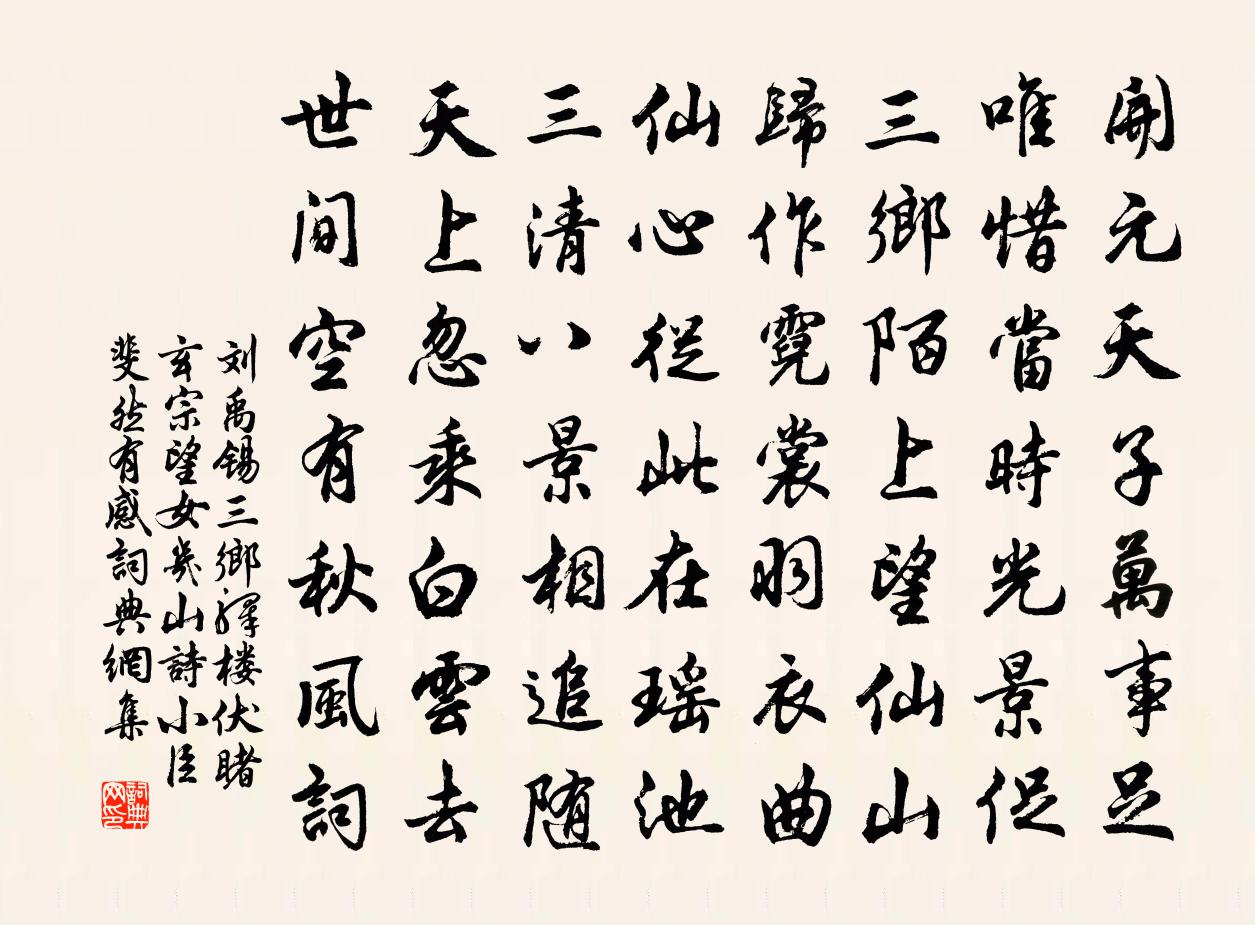 開元天子萬事足
唯惜當時光景促
三鄉陌上望仙山
歸作霓裳羽衣曲
仙心從此在瑤池
三清八景相追隨
天上忽乘白雲去
世間空有秋風詞
刘禹錫三鄉驛楼伏睹
玄宗望女几山詩小臣
斐然有感詞典網集
詞典
网印